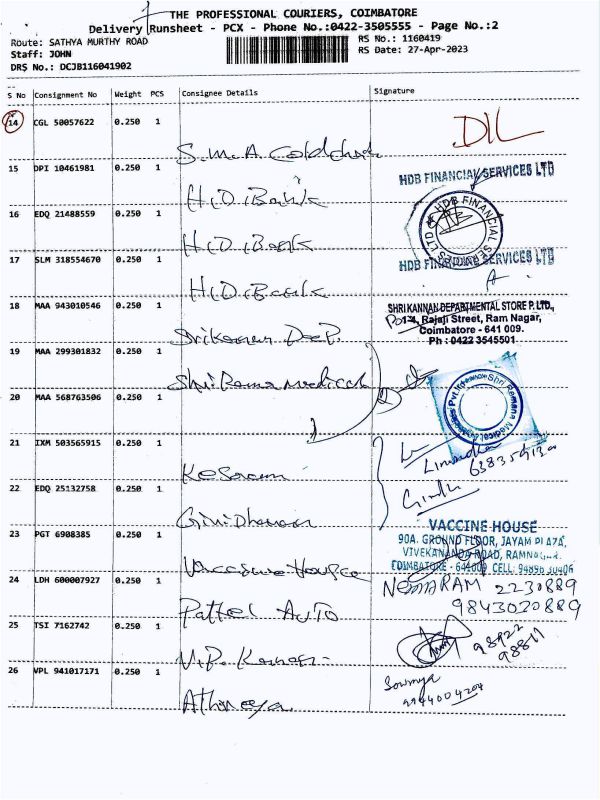 THE PROFESSIONAL COURIERS, COIMBATORE
Delivery Runsheet - PCX - Phone No.:0422-3505555 - Page No.:2
Route: SATHYA MURTHY ROAD
RS No.: 1160419
Staff: JOHN
RS Date: 27-Apr-2023
DRS No.: DCJB116041902
S No Consignment No Weight PCS Consignee Details Signature
14 CGL 50057622 0.250 1
S.M.A. DIL
15 DPI 10461981 0.250 1 HDB FINANCIAL SERVICES LTD
H.D. Bank
16 EDQ 21488559 0.250 1
H.D. Bank
17 SLM 318554670 0.250 1 HDB FINANCIAL SERVICES LTD
H.D. Bank
18 MAA 943010546 0.250 1 SHRI KANNAN DEPARTMENTAL STORE P. LTD.,
Rajaji Street, Ram Nagar,
Coimbatore - 641 009.
Srikannan Dep. Ph : 0422 3545501
19 MAA 299301832 0.250 1
Shri Rama Medical
20 MAA 568763506 0.250 1
21 IXM 503565915 0.250 1
Kesaram
22 EDQ 25132758 0.250 1
Giridharan
VACCINE HOUSE
23 PGT 6908385 0.250 1 90A. GROUND FLOOR, JAYAM PLAZA,
VIVEKANANDA ROAD, RAMNAGAR.
Vaccine House COIMBATORE - 641009 CELL: 94896 30406
24 LDH 600007927 0.250 1 2230889
Pattel Auto 9843020889
25 TSI 7162742 0.250 1 98422
98811
V.P. Kannan
26 VPL 941017171 0.250 1 Sowmya
9944004204